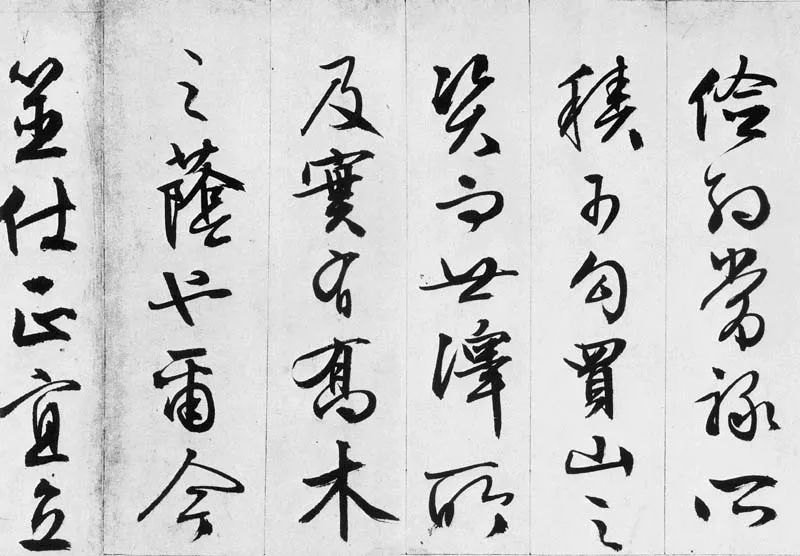 儉常祿所
積可勾買山之
資而世澤所
及實有喬木
之蔭也爾今
筮仕正宜立